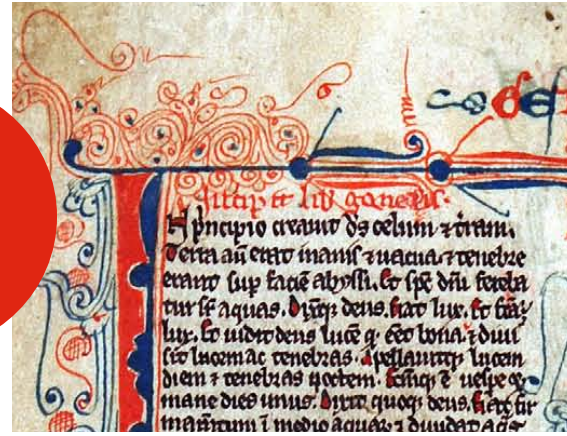 Incip̄it lib̄ genesis.
N pͥncipio creauit d̄s celum ⁊ t̄ram.
Terra aū erat inanis ⁊ uacua. ⁊ tenebre
erant sup̄ faciē abyssi. Et sp̄c dn̄i fereba
tur sꝑ aquas. Dixitq; deus. fiat lux. Et fc̄a ē
lux. Et uidit deus lucē q̄ eēt bona. ⁊ diui
sit lucem ac tenebras. Apellauitq; lucem
diem ⁊ tenebras noctem. Factūq; ē uespe ⁊
mane dies unus. Dixit quoq; deus. fiat fir
mamentum ī medio aquaꝝ ⁊ diuidat aq̄s